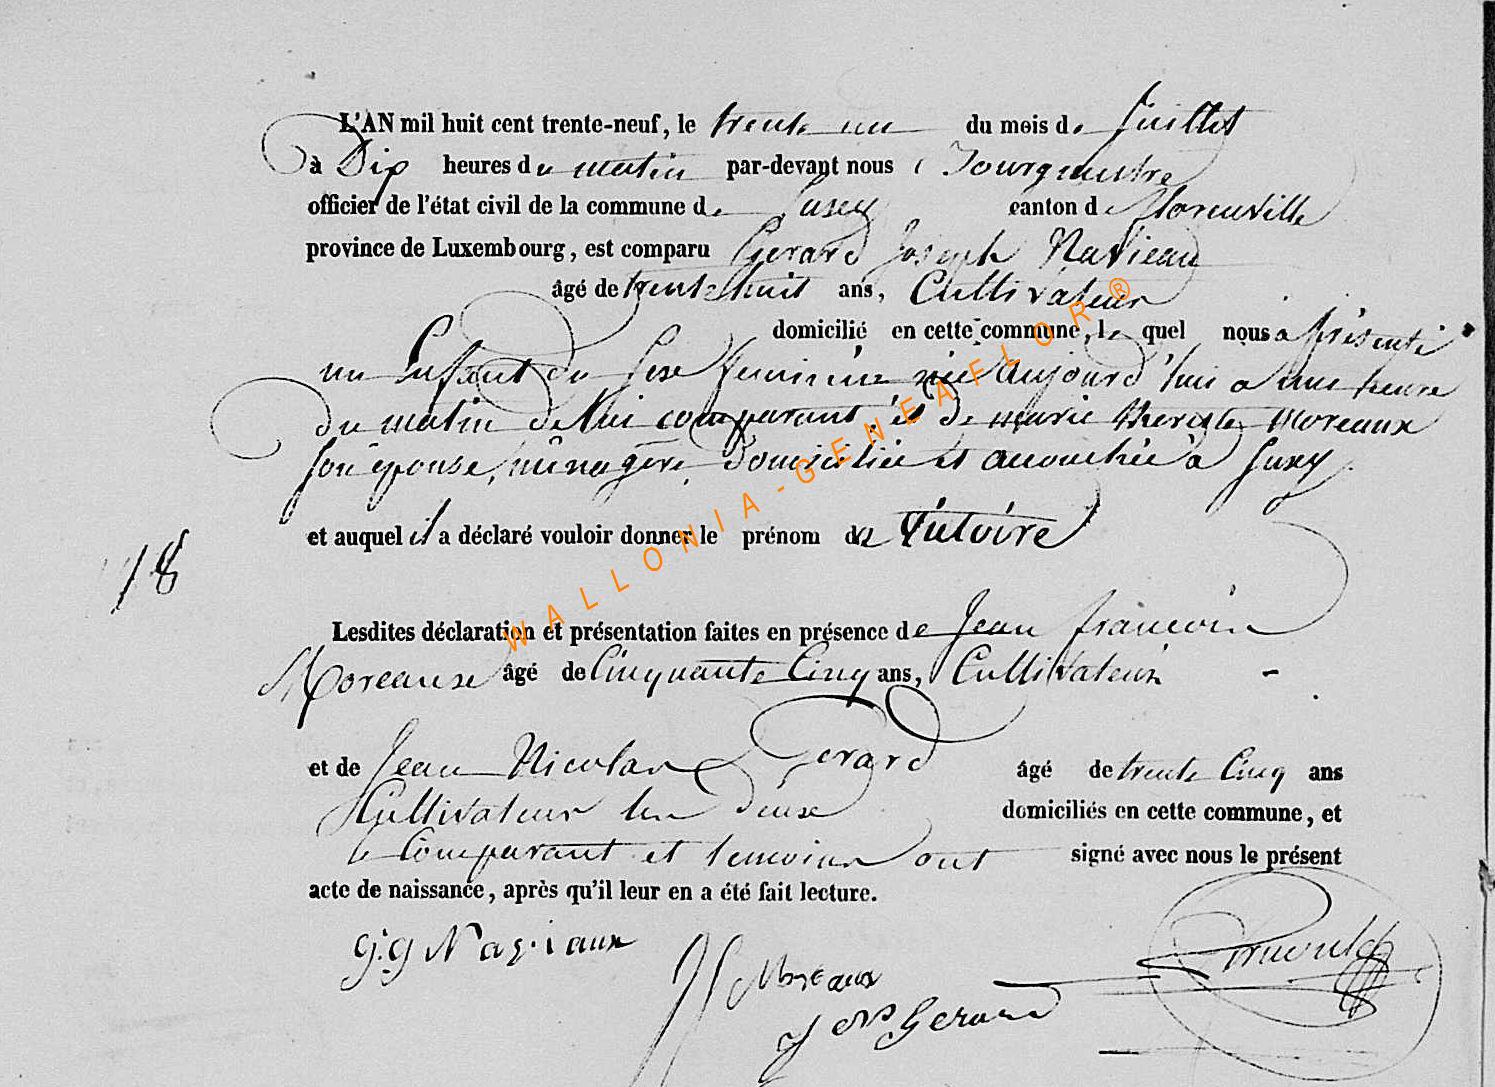 L'AN mil huit cent trente-neuf, le trente un du mois de Juillet
à Dix heures du matin par-devant nous Bourgmestre
officier de l'état civil de la commune de Suxy canton de Florenville
province de Luxembourg, est comparu Gerard Joseph Navieau
âgé de trente huit ans, Cultivateur
domicilié en cette commune, le quel nous a présenté
un Enfant du Sexe feminin née aujourd'hui a une heure
du matin de lui comparant et de marie therese Moreaux
son épouse, ménagère, domiciliée et accouchée à Suxy.
et auquel il a déclaré vouloir donner le prénom de Victoire
18
Lesdites déclaration et présentation faites en présence de Jean francois
Moreaux âgé de Cinquante Cinq ans, Cultivateur
et de Jean Nicolas Gerard âgé de trente Cinq ans
Cultivateur les deux domiciliés en cette commune, et
le Comparant et temoins ont signé avec nous le présent
acte de naissance, après qu'il leur en a été fait lecture.
G.g Naviaux
JF Moreaux
J Gerard
WALLONIA-GENEAFLOR®